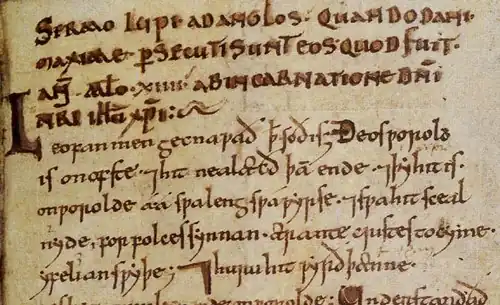 SERMO LUPI AD ANGLOS · QUANDO DANI
MAXIME P̲SECUTI SUNT EOS QUOD FUIT ·
AÑ · MİLLO · XIIII · AB INCARNATIONE DÑI
NRI IHU XPI :
Leofan men gecnawað ꝥ soð is; Ðeos worold
is on ofste · ⁊ hit nealæcð þā ende · ⁊ þy hit is ·
on worolde aa swa leng swa wyrse · ⁊ swa hit sceal
nyde · for folces synnan · ær antecristes tocyme ·
yfelian swyþe; ⁊ huru hit wyrð þænne ·
on worolde; Understandað